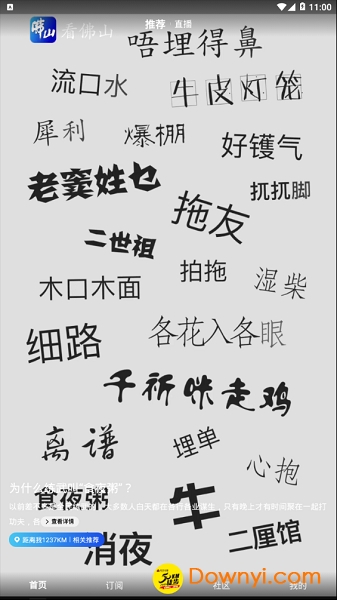 11:00
推荐 · 直播
峨山 看佛山
唔埋得鼻
流口水
牛皮灯笼
犀利
爆棚
好镬气
老窦姓乜
扤扤脚
拖友
二世祖
拍拖
湿柴
木口木面
细路
各花入各眼
千祈咪走鸡
离谱
埋单
心抱
为什么
"食夜粥"?
食夜粥
以前
大多数人白天都在各行各业谋生,只有晚上才有时间聚在一起打
功夫,各
查看详情
牛
二厘馆
距离我1237KM | 相关推荐
消夜
首页
订阅
社区
我的
Downyi.com